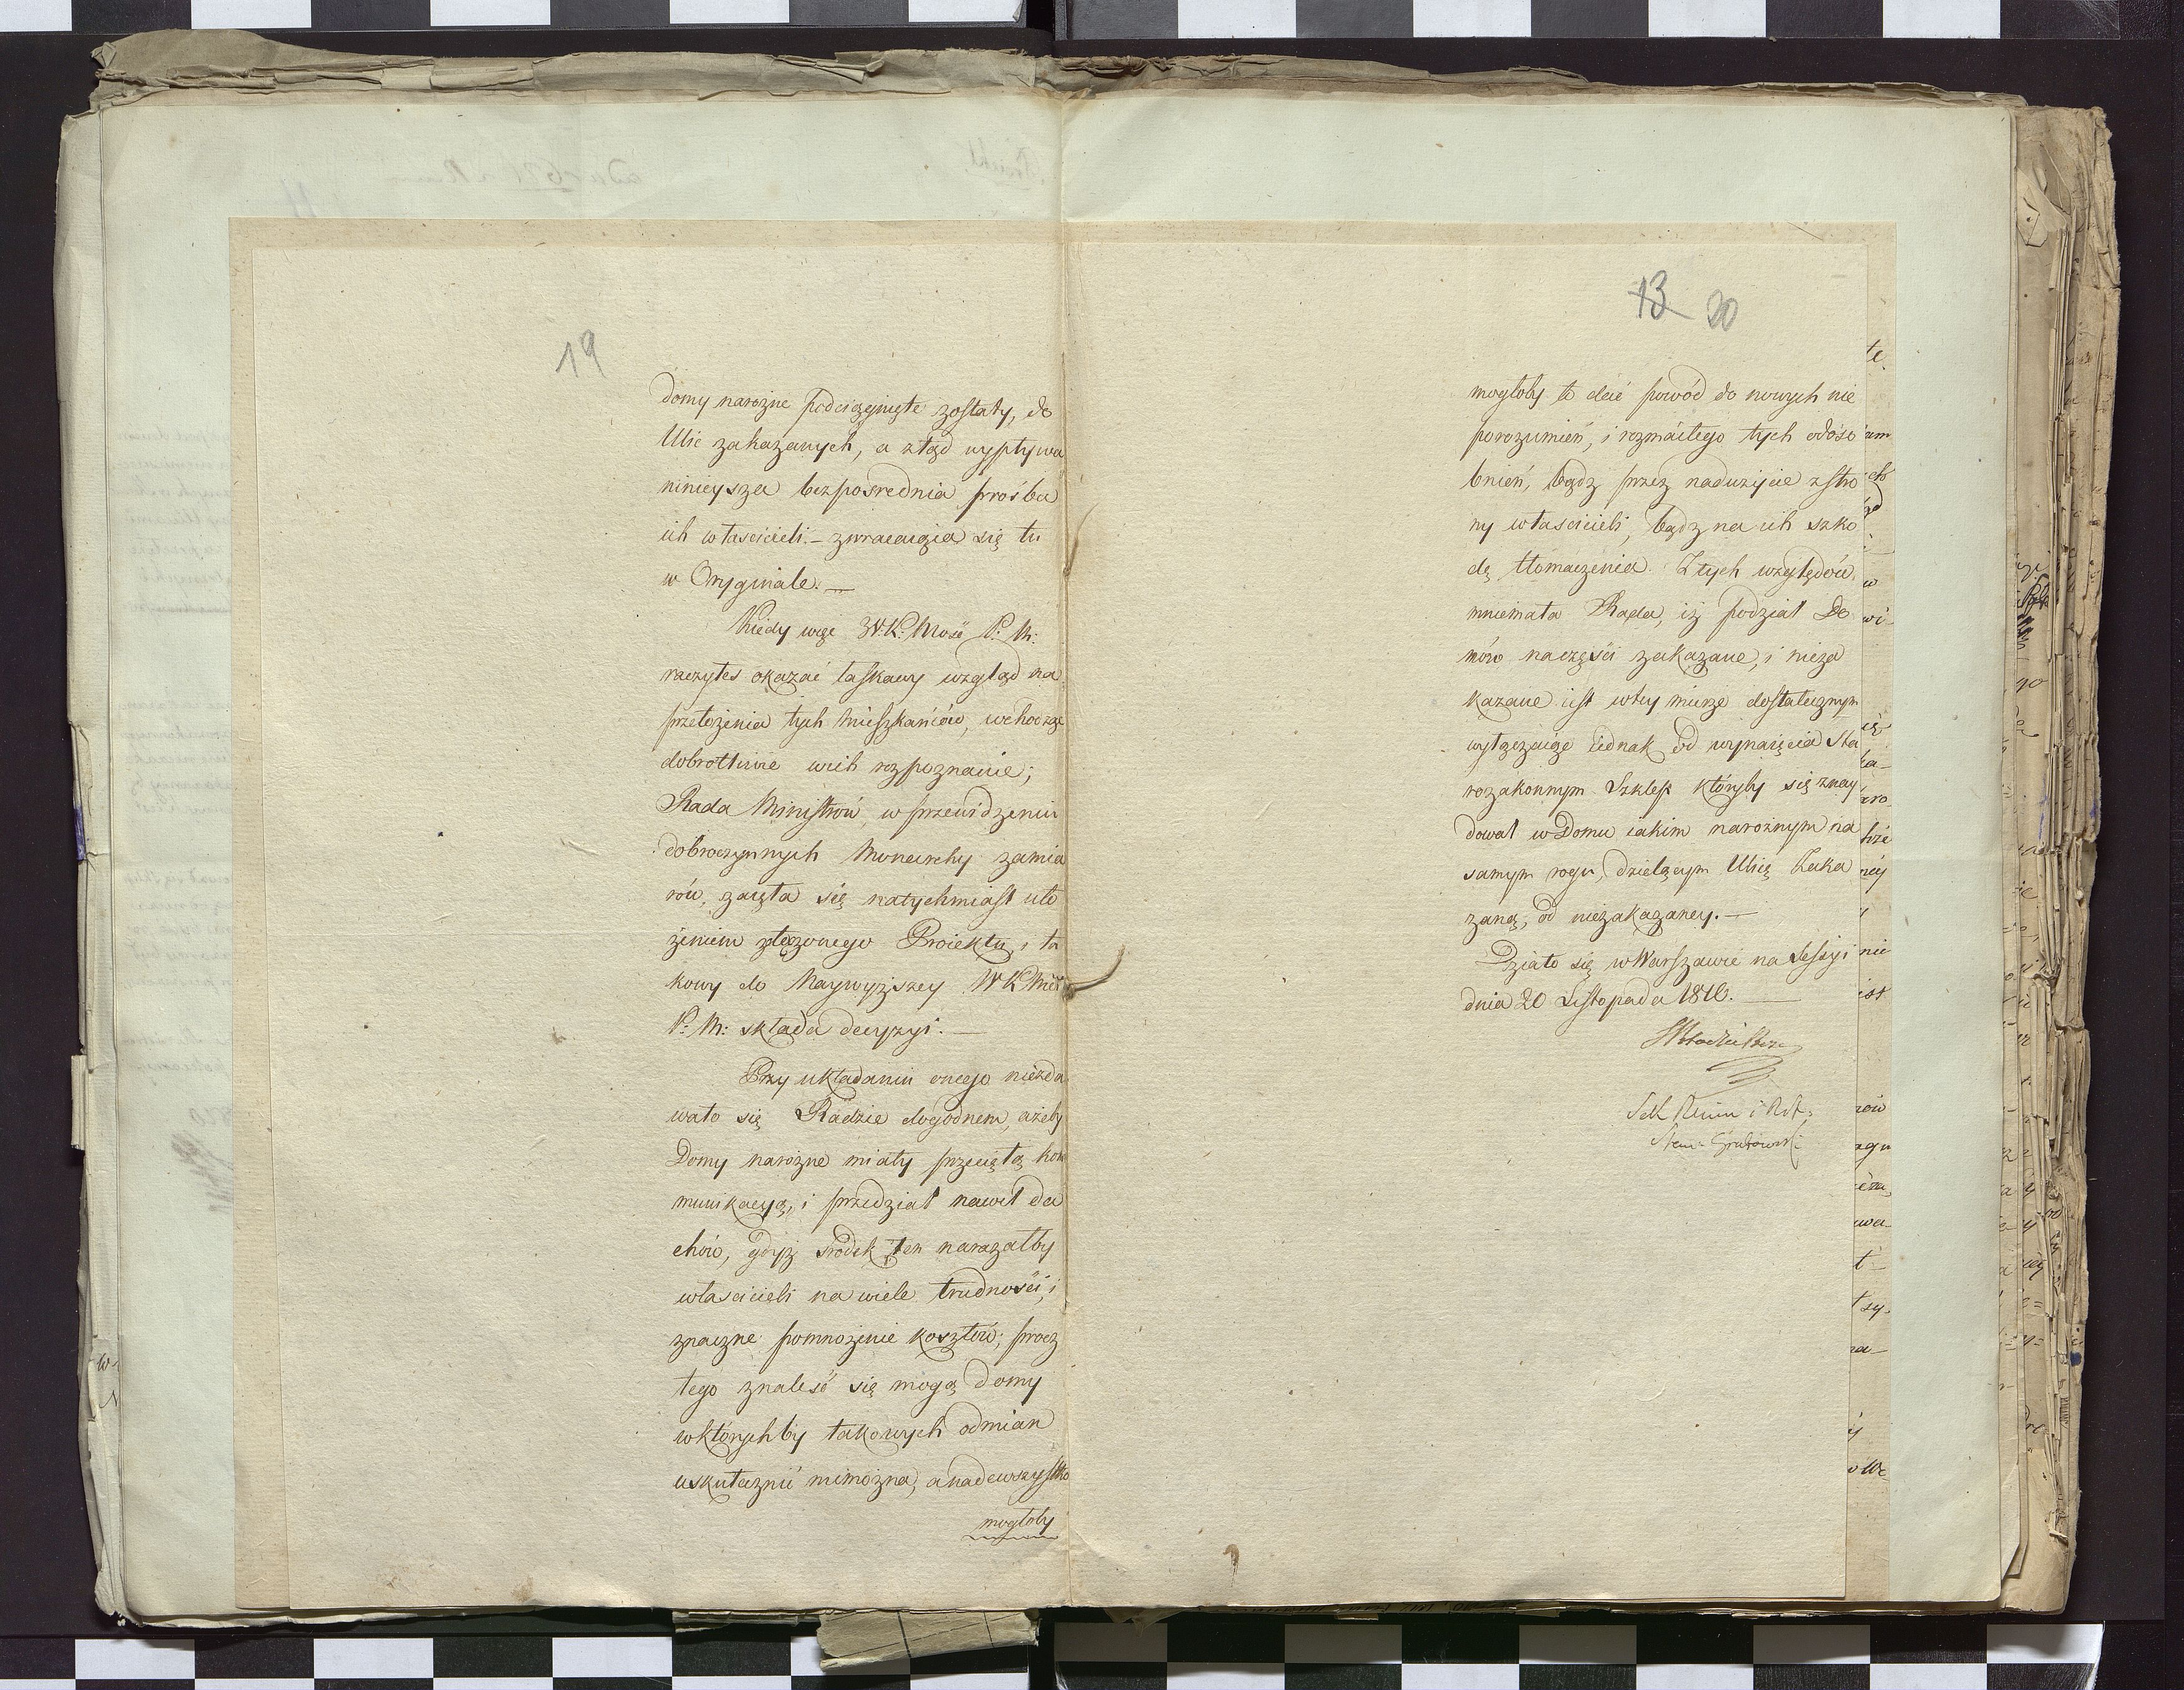 19
domy narożne podciągnięte zostały, do
Ulic zakazanych, a ztąd wypływa
ninieysza bezpośrednia prośba
ich właścicieli. – zwracaiąca się tu
w Oryginale. —
Kiedy więc W. K: Mość P: M:
raczyłeś okazać łaskawy wzgląd na
przełożenia tych Mieszkańców, wchodząc
dobrotliwie w ich rozpoznanie;
Rada Ministrów, w przewidzeniu
dobroczynnych Monarchy zamia
rów, zaięła się natychmiast uło
żeniem złączonego Proiektu, i ta
kowy do Naywyższey W K Mći
P: M: składa decyzyi. —
Przy układaniu onego niezda
wało się Radzie dogodnem, ażeby
Domy narożne miały przeciętą kom
munikacyą, i przedział nawet da
chów, gdyż środek ten narażałby
właścicieli na wiele trudności, i
znaczne pomnożenie kosztów; prócz
tego znaleść się mogą domy
w których by takowych odmian
uskutecznić niemożna, a nadewszystko
mogłoby
13 20
mogłoby to dać powód do nowych nie
porozumień, i rozmaitego tych odoso
bnień, bądz przez nadużycie z stro
ny właścicieli, bądz na ich szko
dę tłomaczenia. Z tych względów
mniemała Rada, iż podział Do
mów na części zakazane, i nieza
kazane iest w tey mierze dostatecznym
wyłączaiąc iednak od wynaięcia Sta
rozakonnym Sklep któryby się znay
dował w Domu iakim narożnym na
samym rogu, dzielącym Ulicę Zaka
zaną, od niezakazaney. —
Działo się w Warszawie na Sessyi
dnia 20 Listopada 1816. —